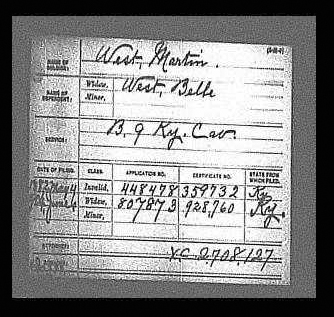 (3-45-8)
NAME OF SOLDIER: West, Martin.
NAME OF DEPENDENT: Widow, West, Belle
Minor,
SERVICE: B. 9 Ky. Cav.
DATE OF FILING. CLASS. APPLICATION NO. CERTIFICATE NO. STATE FROM WHICH FILED.
1882 May 4 Invalid, 448478 359732 Ky.
June 6 Widow, 807873 928,760 Ky.
Minor,
ATTORNEY:
XC 2,708,127